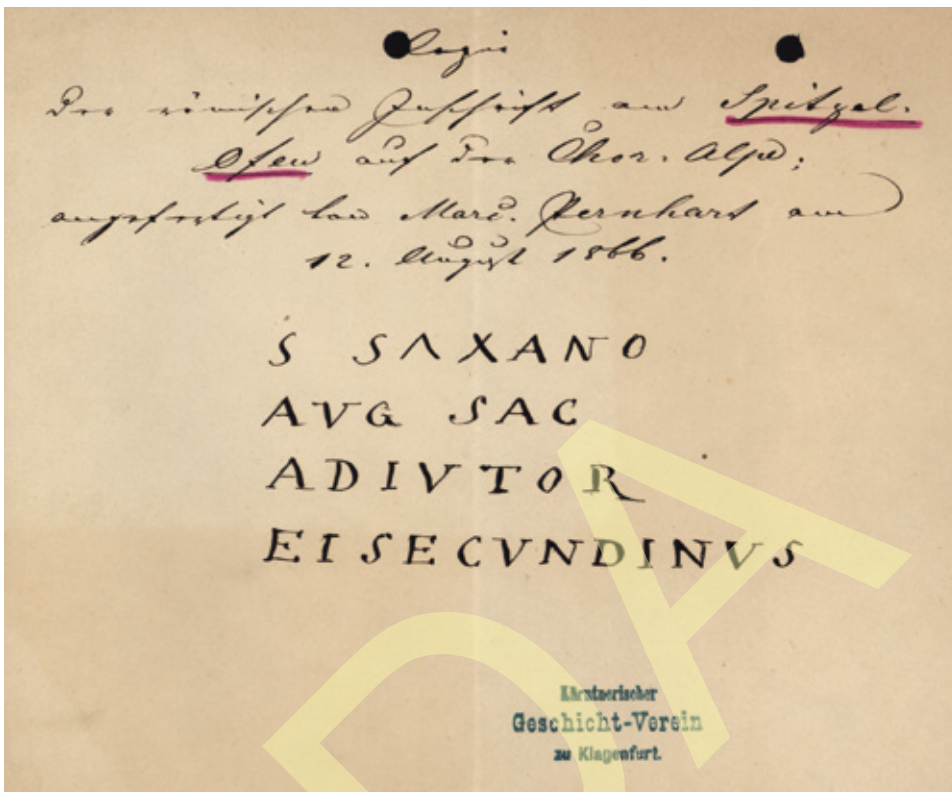 Copie
der römischen Inschrift am Spitzel-
Ofen auf der Chor-Alpe;
angefertigt von Marc. Pernhart am
12. August 1866.
S SAXANO
AVG SAC
ADIVTOR
EI SECVNDINVS
Kärntnerischer
Geschicht-Verein
zu Klagenfurt.